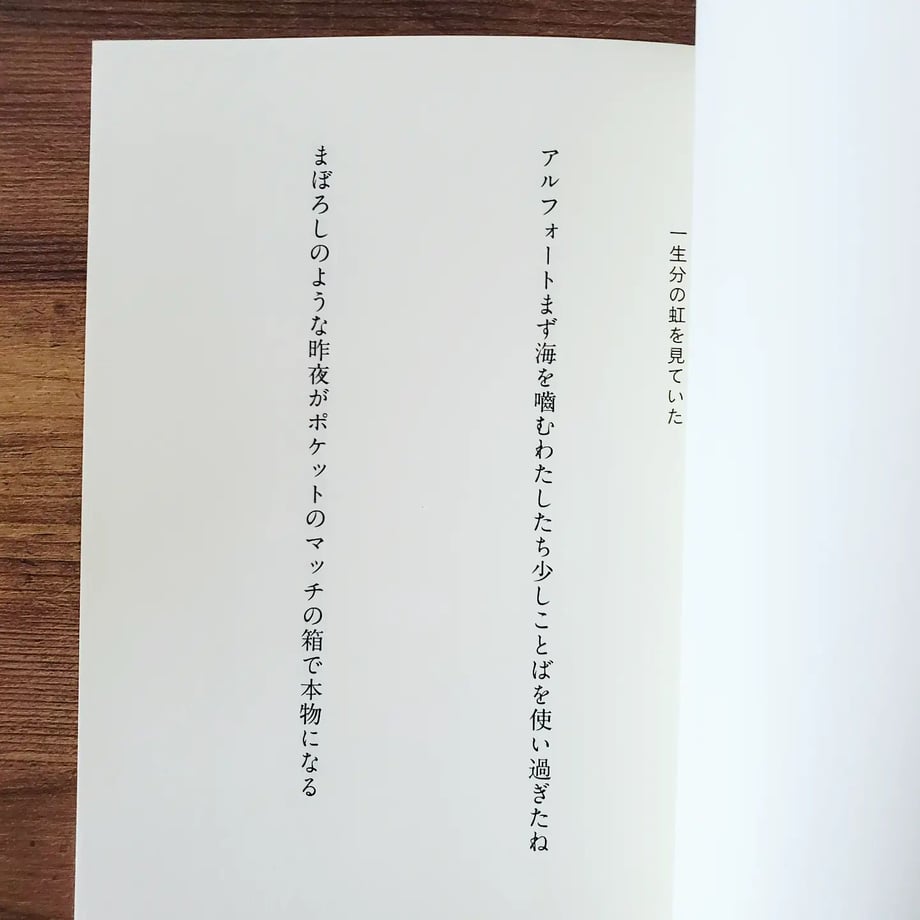 一生分の虹を見ていた
アルフォートまず海を嚙むわたしたち少しことばを使い過ぎたね
まぼろしのような昨夜がポケットのマッチの箱で本物になる